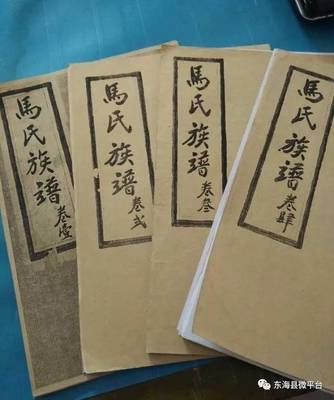 馬氏族谱
卷壹
馬氏族谱
卷弍
馬氏族谱
卷叁
馬氏族谱
卷肆
东海县微平台